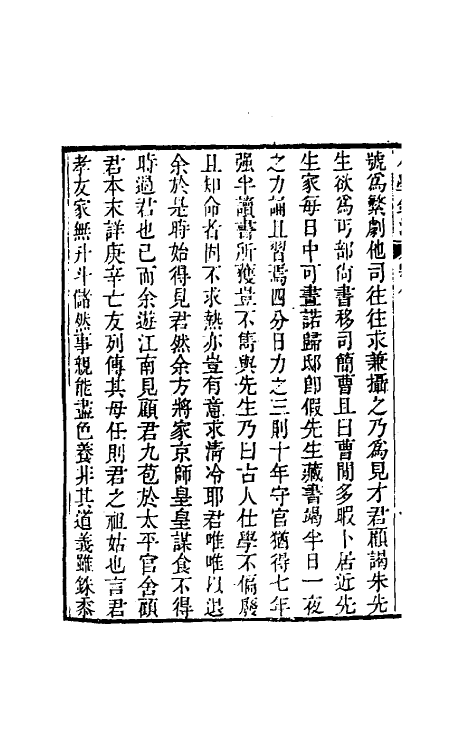 號爲繁劇他司往往求兼攝之乃爲見才君顧謁朱先
生欲爲丐部尙書移司簡曹且曰曹閒多暇卜居近先
生家每日中可畫諾歸邸卽假先生藏書竭半日一夜
之力誦且習焉四分日力之三則十年守官猶得七年
强半讀書所獲豈不雋與先生乃曰古人仕學不偏廢
且知命者固不求熱亦豈有意求清冷耶君唯唯以退
余於是時始得見君然余方將家京師皇皇謀食不得
時過君也已而余遊江南見顧君九苞於太平官舍顧
君本末詳庚辛亡友列傳其母任則君之祖姑也言君
孝友家無升斗儲然事親能盡色養非其道義雖銖黍